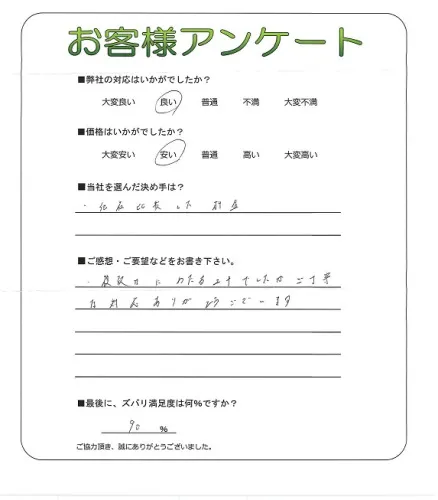 お客様アンケート
■弊社の対応はいかがでしたか?
大変良い 良い 普通 不満 大変不満
■価格はいかがでしたか?
大変安い 安い 普通 高い 大変高い
■当社を選んだ決め手は?
・他店比較した
■ご感想・ご要望などをお書き下さい。
・ にわたる工事でしたがご丁寧
な対応ありがとうございます
■最後に、ズバリ満足度は何%ですか?
90 %
ご協力頂き、誠にありがとうございました。